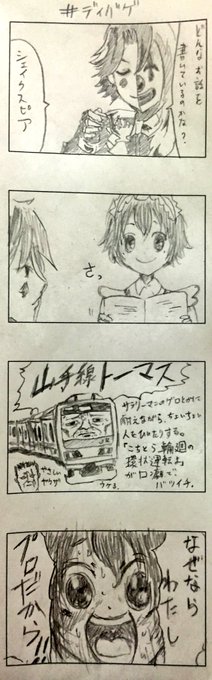 #ディバゲ
どんなお話を
書いているのかな?
シェイクスピア
さっ
山手線トーマス
サラリーマンのゲロとかに
耐えながら、ちょいちょい
人をひいたりする。
「こちとら輪廻の
環状運転よ」
が口癖で、
バツイチ。
やさしい
ヤクザ
ウケる
なぜなら
わたし
プロだから!!